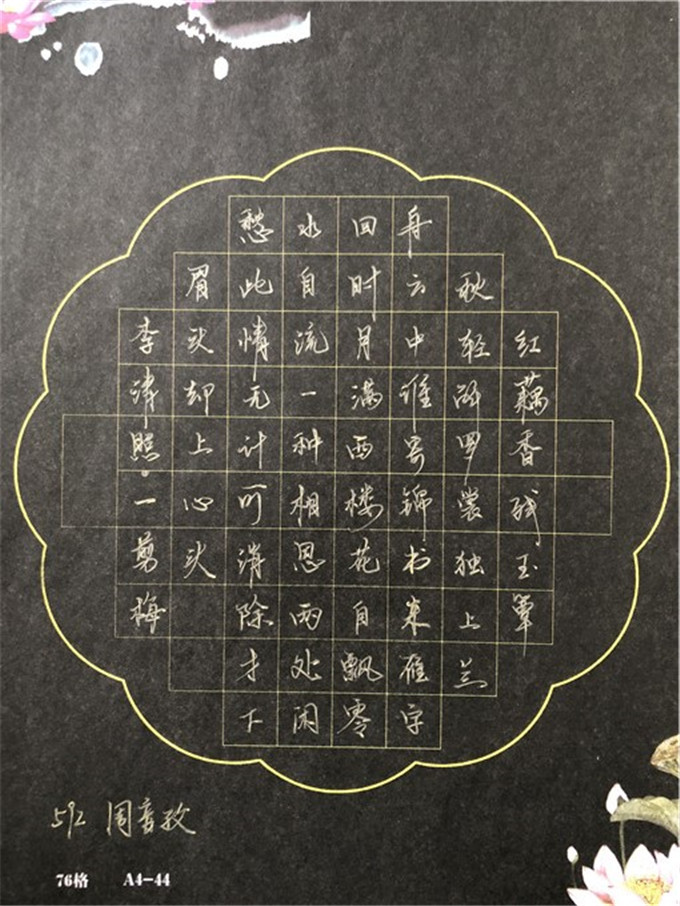 红藕香残玉簟
秋轻解罗裳独上兰
舟云中谁寄锦书来雁字
回时月满西楼花自飘零
水自流一种相思两处闲
愁此情无计可消除才下
眉头却上心头
李清照。一剪梅
592 周音孜
76格 A4-44